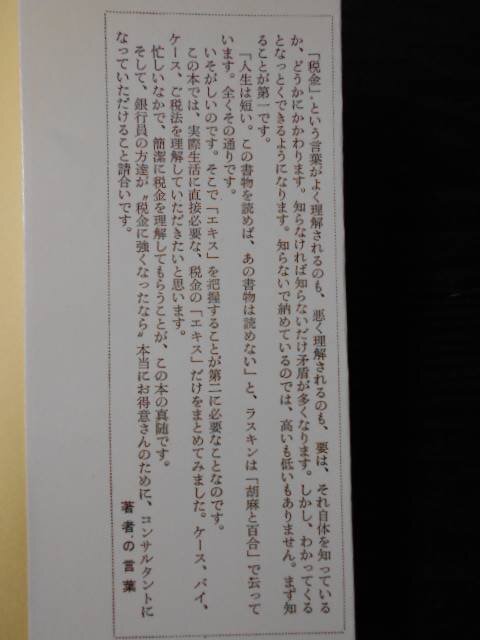 「税金」という言葉がよく理解されるのも、悪く理解されるのも、要は、それ自体を知っている
か、どうかにかかわります。知らなければ知らないだけ矛盾が多くなります。しかし、わかってくる
となっとくできるようになります。知らないで納めているのでは、高いも低いもありません。まず知
ることが第一です。
「人生は短い。この書物を読めば、あの書物は読めない」と、ラスキンは「胡麻と百合」で云って
います。全くその通りです。
いそがしいのです。そこで「エキス」を把握することが第二に必要なことなのです。
この本では、実際生活に直接必要な、税金の「エキス」だけをまとめてみました。ケース、バイ、
ケース、ご税法を理解していただきたいと思います。
忙しいなかで、簡潔に税金を理解してもらうことが、この本の真随です。
そして、銀行員の方達が〝税金に強くなったなら〟本当にお得意さんのために、コンサルタントに
なっていただけること請合いです。
著者の言葉